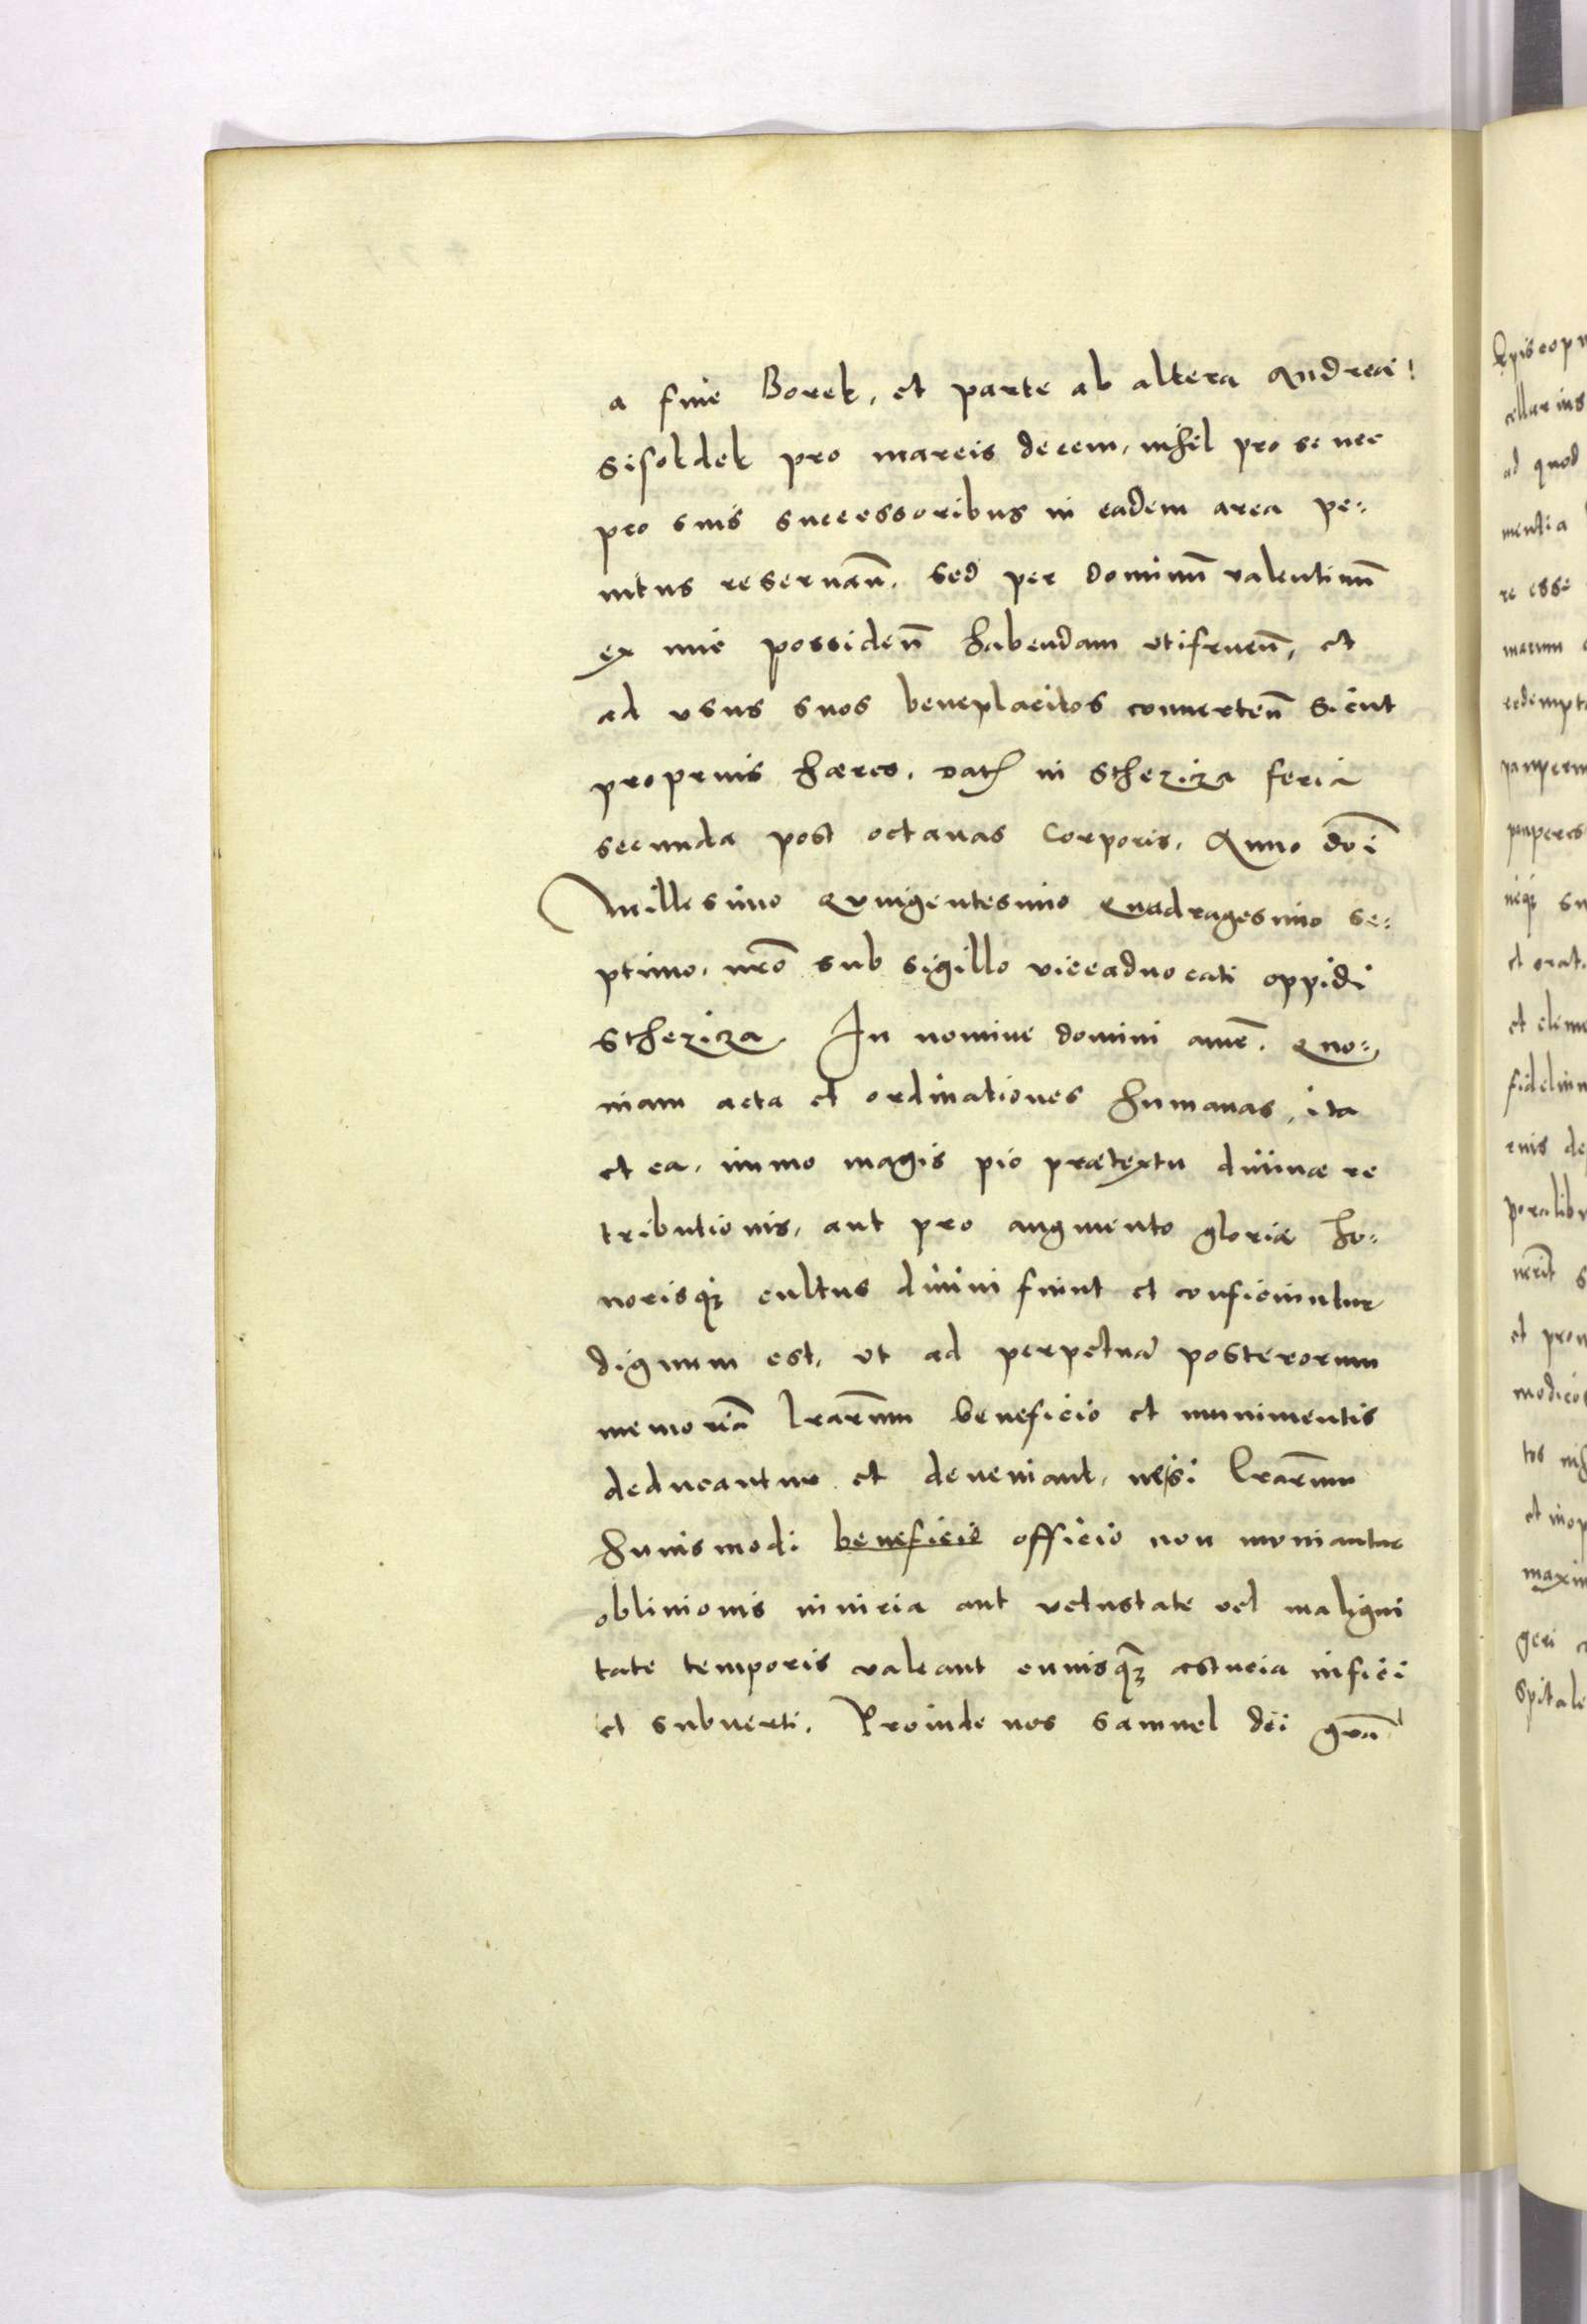 a fine Borek, et parte ab altera Andreæ
Sisoldek pro marcis decem, nihil pro se nec
pro suis successoribus in eadem area pe:
nitus reseruan̄. Sed per dominū valentinū
ex nūc possiden̄ habendam vtifruen̄, et
ad vsus suos beneplacitos conuerten̄ Sicut
proprius hæres. Dat̄ in Stheziza feria
secunda post octauas Corporis, Anno dn̄i
Millesimo Quingentesimo Quadragesimo se:
ptimo. nr̄o sub sigillo viceaduocati oppidi
Stheziza. In nomine domini amē. Quo:
niam acta et ordinationes humanas, ita
et ea, immo magis pio prætextu diuinæ re
tributionis, aut pro augmento gloriæ ho:
norisq3 cultus diuini fiunt et conficiuntur
dignum est, vt ad perpetuā posterorum
memoriā lrārum beneficio et munimentis
deducantur et deueniant, nisi lrārum
huiusmodi beneficio officio non muniantur
obliuionis iniuria aut vetustate vel maligni
tate temporis valeant cuiusq3 astucia infici
et subuerti. Proinde nos Samuel dei grā
Episcopu
cellarius
ad quod
mentia
re esse
marum
redempt
pauperu
pauperes
neq3 su
et orat
et elim
fidelium
euis de
poralibu
nerit s
et prou
modico
tos nih
et inop
maxim
geri
spitale